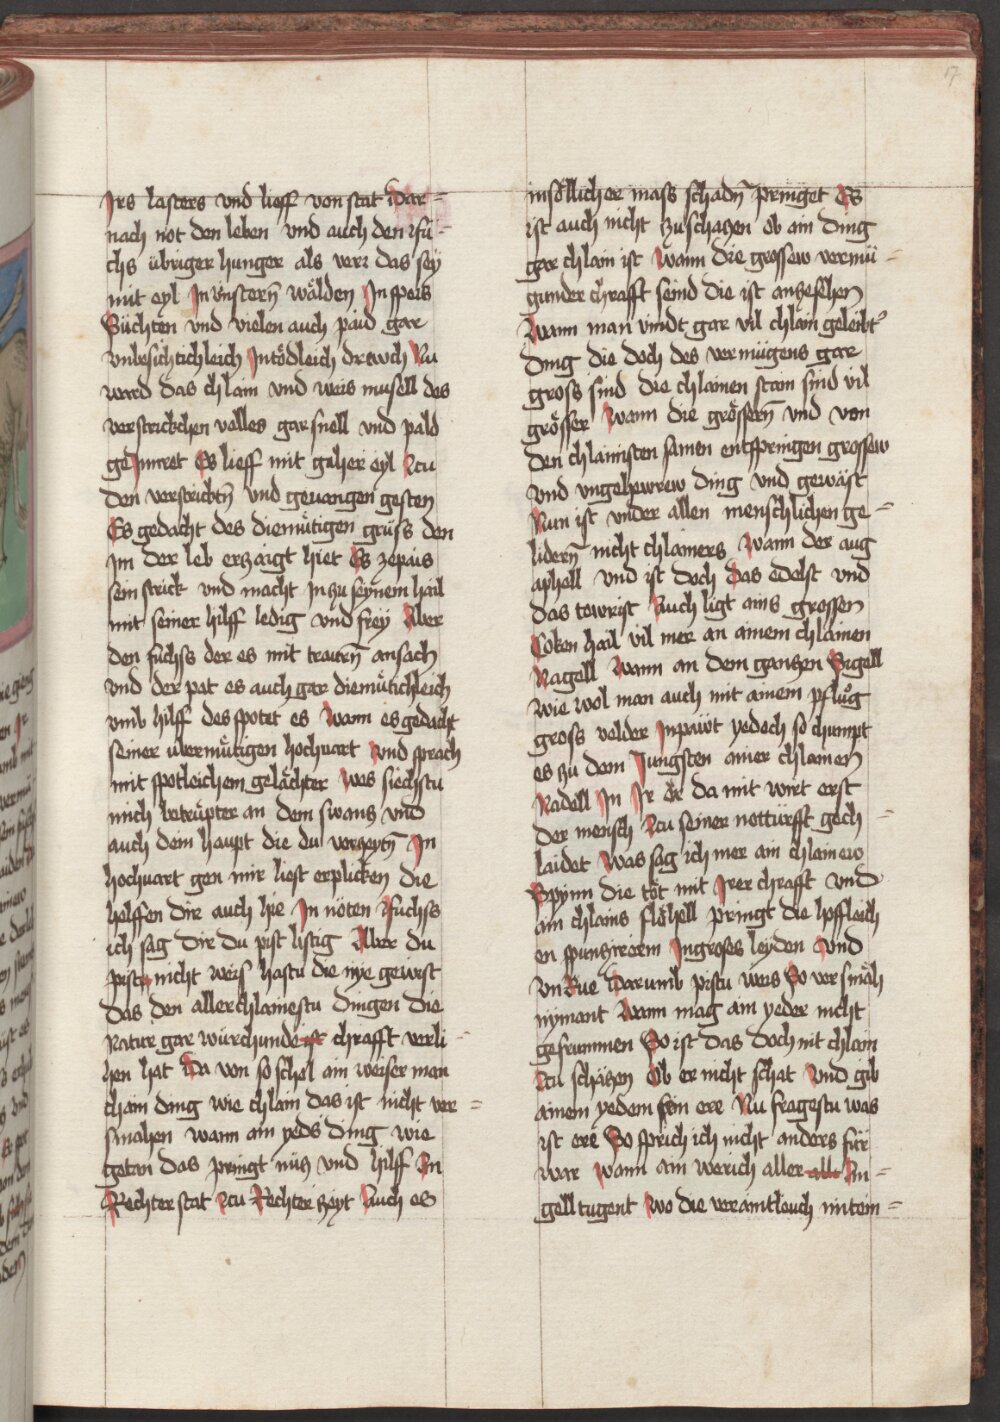 17
Irs lasters vnd lieff von stat Dar=
nach not den leben vnd auch den ffu=
chs übriger hunger als verr das sey
mit eyl In vinstern̄ wälden In speis
Süchten vnd vielen auch paid gar
vnbesichtichleich In tödleich drewch Nu
ward das chlain vnd weis musell des
verstrickchen valles gar snell vnd pald
geInnret Es lieff mit gaher eyl Zcu
den verstricktn̄ vnd geuangen gesten
Es gedacht des diemütigen gruss den
Im der leb erzaigt hiet Es zepais
sein strick vnd macht In zu seynem hail
mit seiner hilff ledig vnd frey Aber
den fuchss der es mit traurn̄ ansach
vnd der pat es auch gar diemütichleich
vmb hilff des spotet es Wann es gedacht
seiner ubermütigen hochuart vnd sprach
mit spotleichem gelächter Was siechstu
mich betrupter an dem swantz vnd
auch dein haupt die du vorzeytn̄ In
hochuart gen mir liest erplicken die
helffen dir auch hie In nöten Ffuchss
ich sag dir du pist listig Aber du
pist nicht weis hastu die nye gewist
das den allerchlainestn dingen die
Natur gar würchunde chrafft verli=
hen hat Da von so schol ain weiser man
chain ding wie chlain das ist nicht ver=
smahen wann ain yeds ding wie
getan das pringt nütz vnd hilff An
Rechter stat Zcu Rechter zeyt Auch es
in söllicher mass schadn̄ pringet Es
ist auch nicht zu schatzen ob ain ding
gar chlain ist Wann die grossew vermü=
gunder chrafft seind die ist anzesehen
Wann man vindt gar vil chlain geleibt
ding die doch des vermügens gar
gross sind die chlainen stain sind vil
grösser Wann die grössern̄ vnd von
den chlainisten samen entspringen grossew
vnd vngehewrew ding vnd gewäst
Nun ist vnder allen menschlichen ge=
lidern̄ nicht chlainers Wann der aug
aphell vnd ist doch Das edelst vnd
das tewrist Auch ligt ains grossen
Coken hail vil mer an ainem chlainen
Nagell Wann an dem gantzen Sigell
Wie wol man auch mit ainem pflug
gross velder Inpawt yedoch so chumpt
es zu dem Jungsten ainer chlainen
Nadell In Ir Er da mit wirt erst
der mensch Zcu seiner notturfft gech=
laidet Was sag ich mer ain chlainew
Spynn die töt mit Irer chrafft vnd
ain chlains flöhell pringt die hoffleich
en Juncfrewen In groses leyden vnd
vnRue Darumb pistu weis So versmäh
nymant Wann mag ain yeder nicht
gefrummen So ist das doch nit chlain
Zcu schätzen Ob er nicht schat vnd gib
ainem yedem sein ere Nu fragestu was
ist ere So sprich ich nicht anders für
war Wann ain werich aller alle An=
gell tugent Wo die veraintleuch mitein=